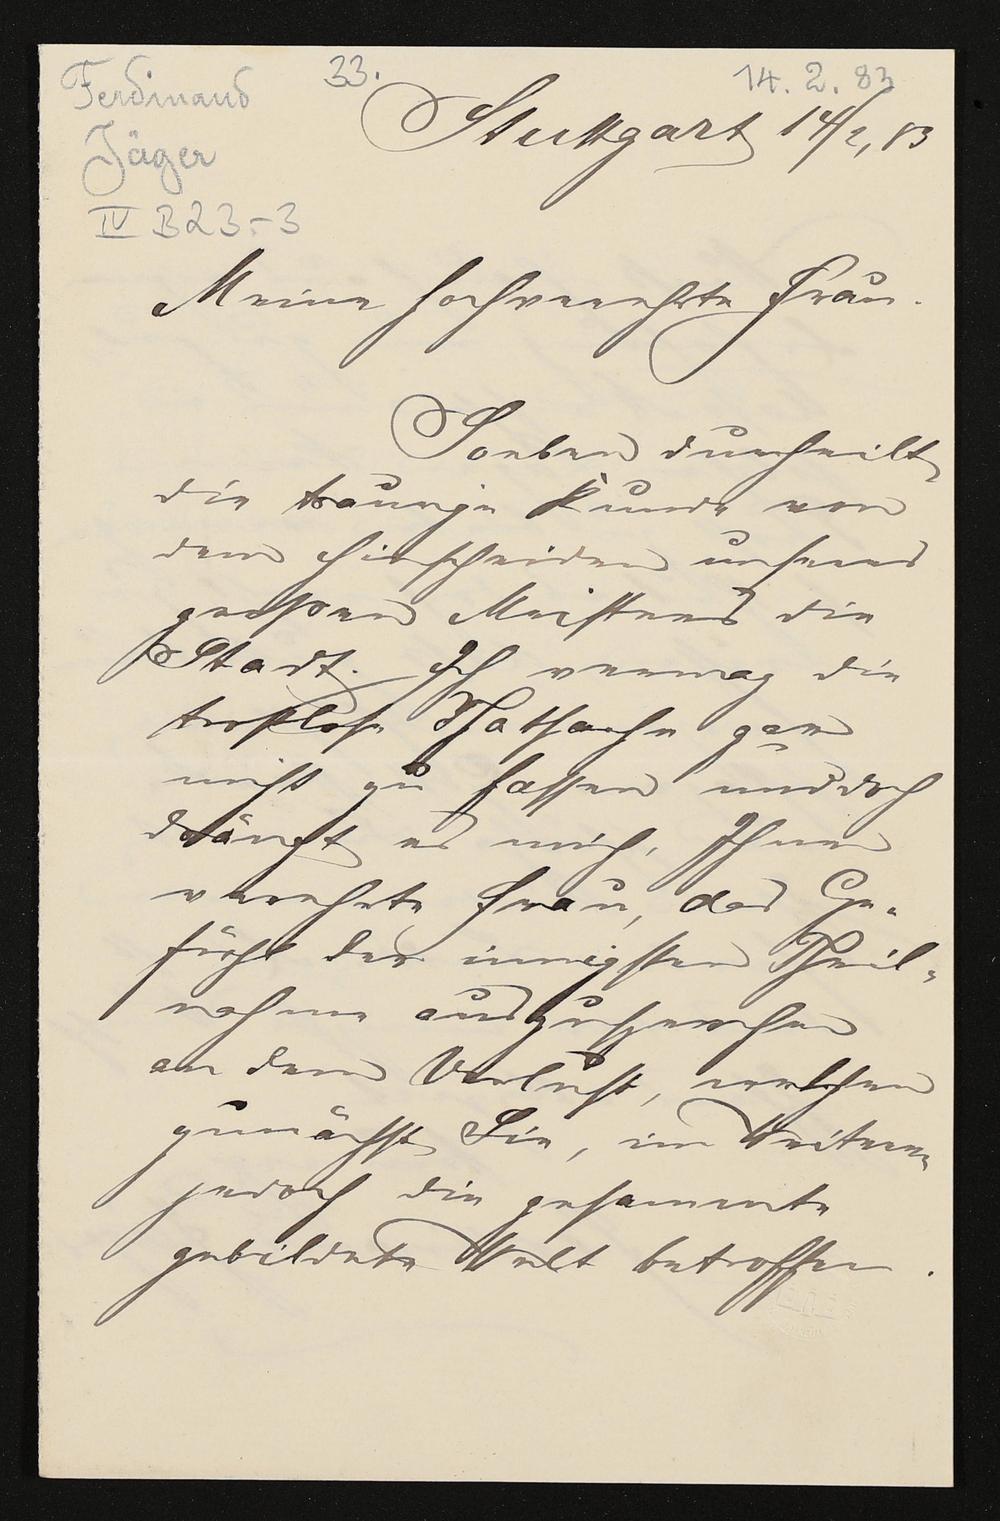 Ferdinand
Jäger
IV B 23-3
33.
14. 2. 83
Stuttgart 14/2, 83
Meine hochverehrte Frau.
Soeben durcheilt
die traurige Kunde von
dem Hinscheiden unseres
großen Meisters die
Stadt. Ich vermag die
trostlose Thatsache gar
nicht zu fassen und doch
drängt es mich, Ihnen
verehrte Frau, das Ge-
fühl der innigsten Theil-
nahme auszusprechen
an dem Verlust, welchen
zunächst Sie, im Weitern
jedoch die gesammte
gebildete Welt betroffen.